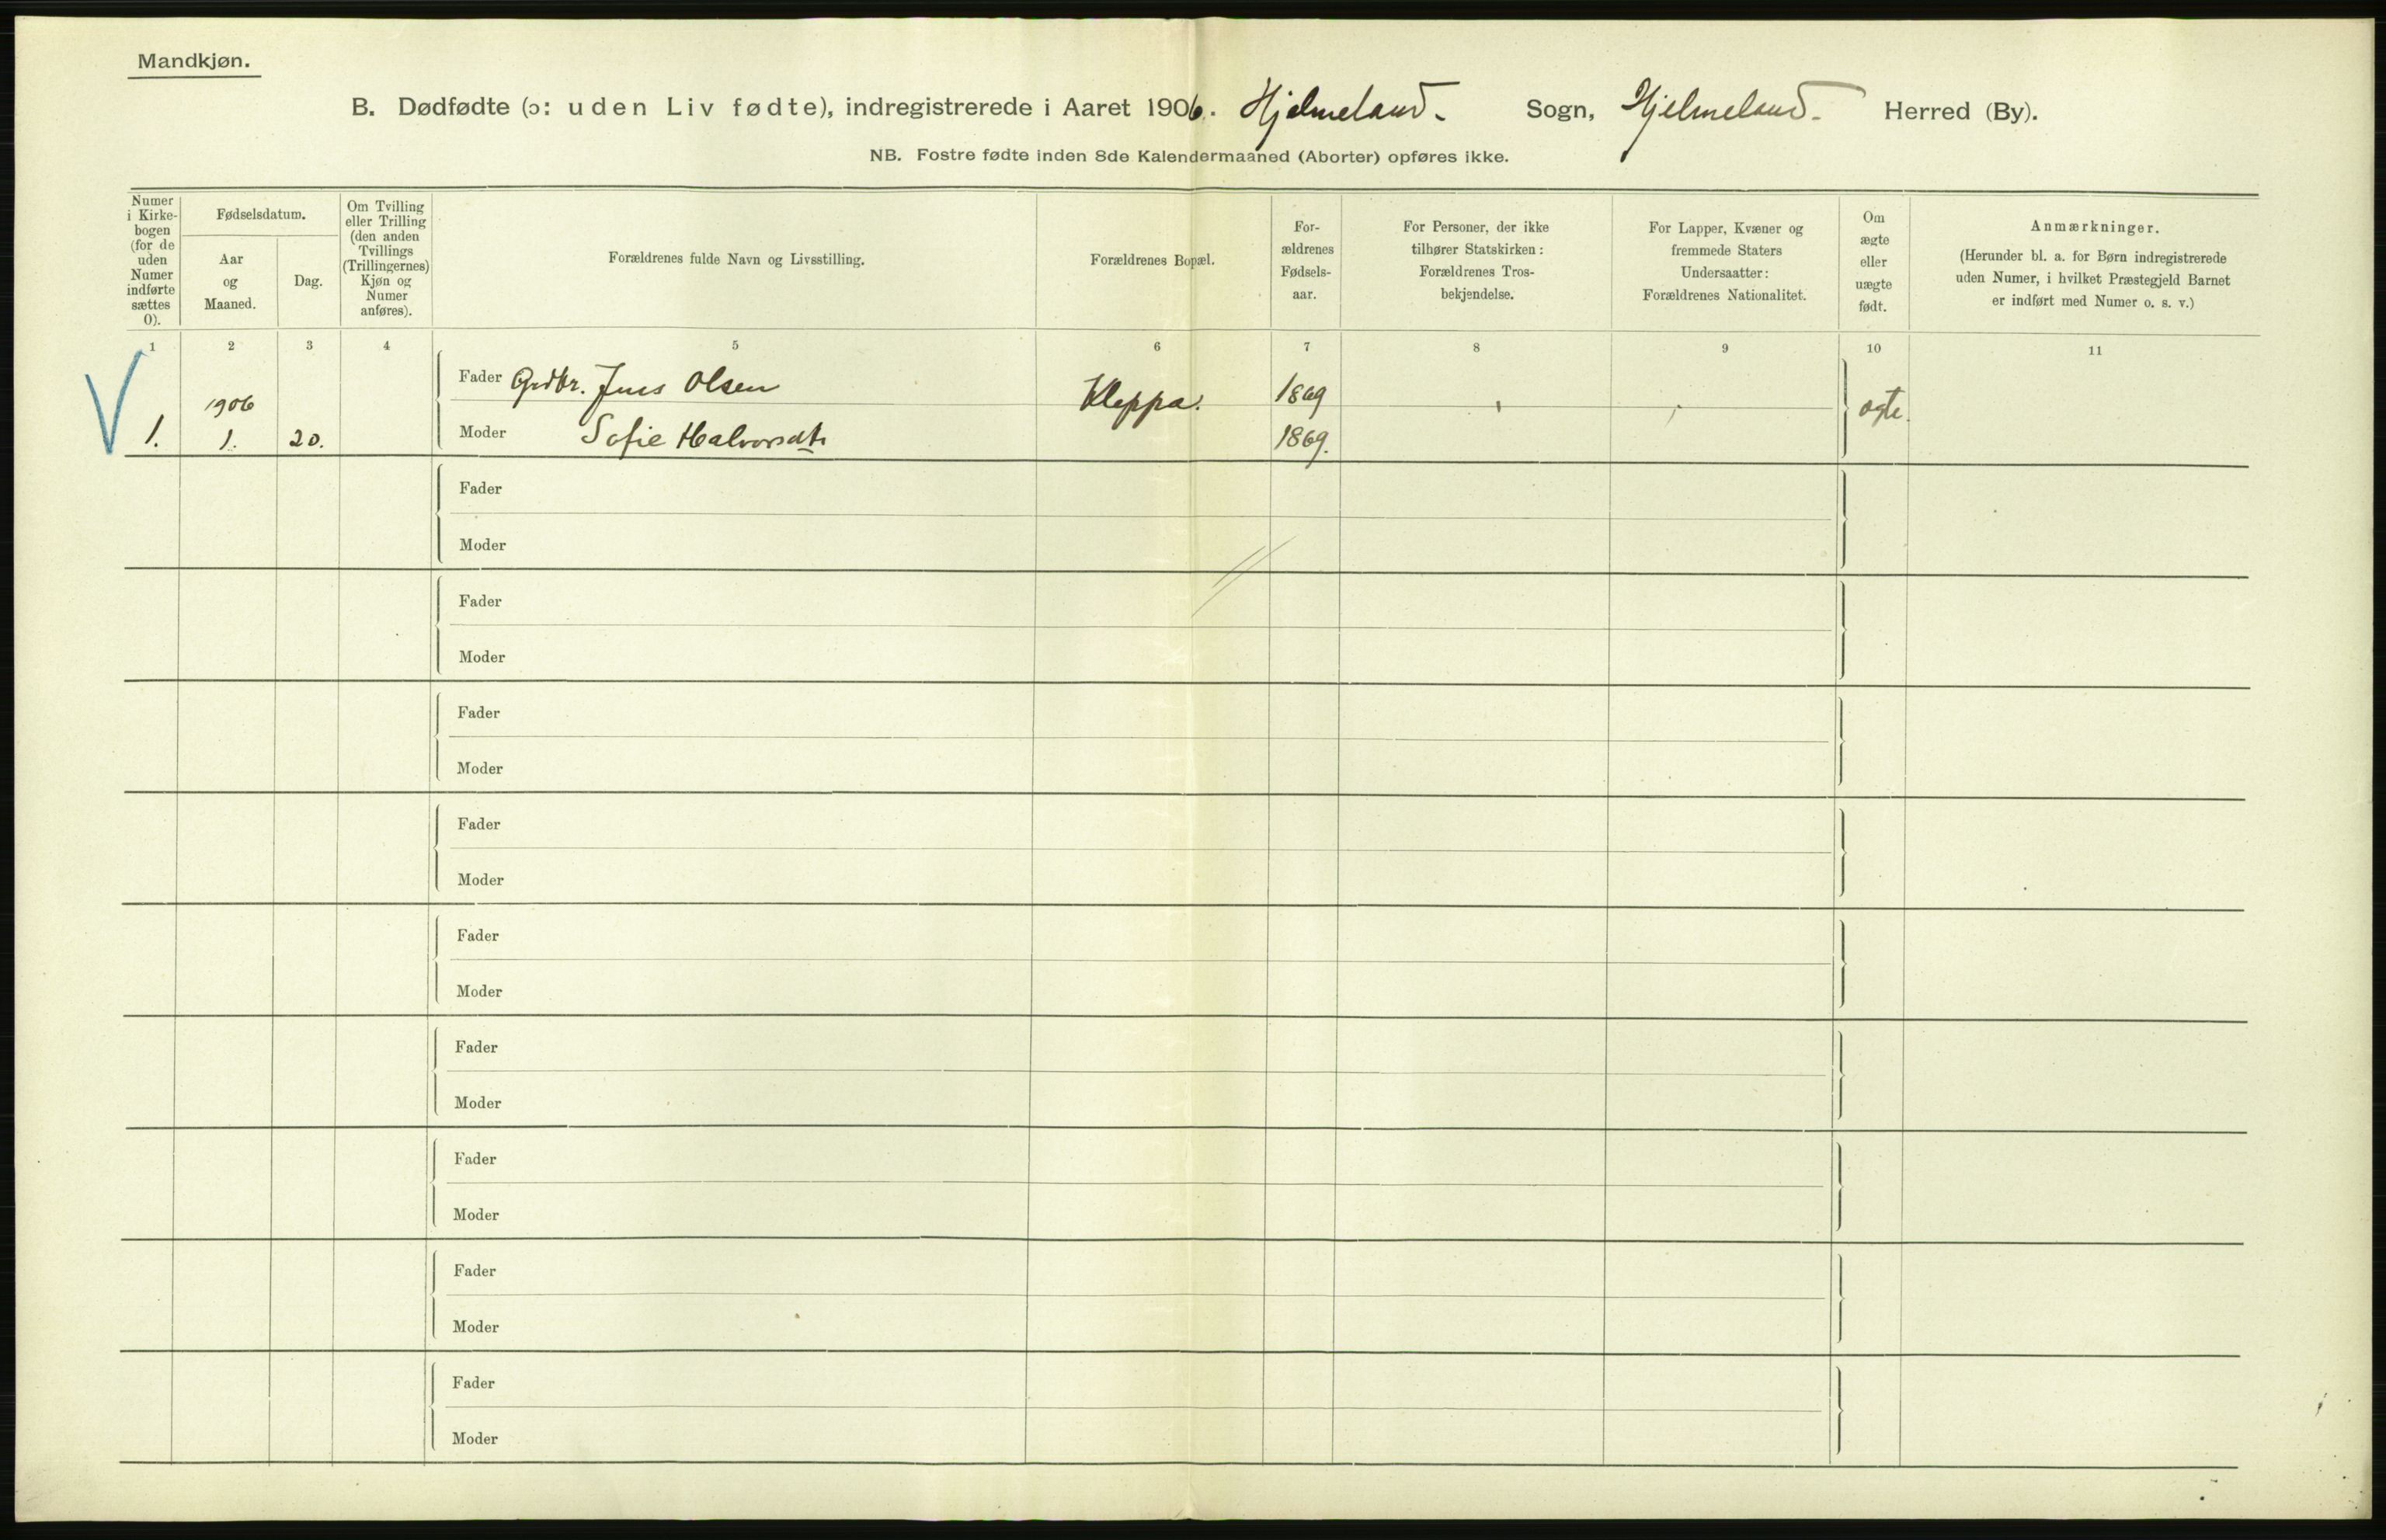 Mandkjøn.
B. Dødfødte (ɔ: uden Liv fødte), indregistrerede i Aaret 1906. Hjelmeland. Sogn, Hjelmeland. Herred (By).
NB. Fostre fødte inden 8de Kalendermaaned (Aborter) opføres ikke.
Numer
i Kirke-
bogen
(for de
uden
Numer
indførte
sættes
0).
Fødselsdatum.
Aar
og
Maaned.
Dag.
Om Tvilling
eller Trilling
(den anden
Tvillings
(Trillingernes)
Kjøn og
Numer
anføres).
Forældrenes fulde Navn og Livsstilling.
Forældrenes Bopæl.
For-
ældrenes
Fødsels-
aar.
For Personer, der ikke
tilhører Statskirken:
Forældrenes Tros-
bekjendelse.
For Lapper, Kvæner og
fremmede Staters
Undersaatter:
Forældrenes Nationalitet.
Om
ægte
eller
uægte
født.
Anmærkninger.
(Herunder bl. a. for Børn indregistrerede
uden Numer, i hvilket Præstegjeld Barnet
er indført med Numer o. s. v.)
1 2 3 4 5 6 7 8 9 10 11
Fader Grdbr. Jens Olsen Kleppa. 1869 ægte.
1906
1. 1. 20. Moder Sofie Halvorsdtr 1869.
Fader
Moder
Fader
Moder
Fader
Moder
Fader
Moder
Fader
Moder
Fader
Moder
Fader
Moder
Fader
Moder
Fader
Moder